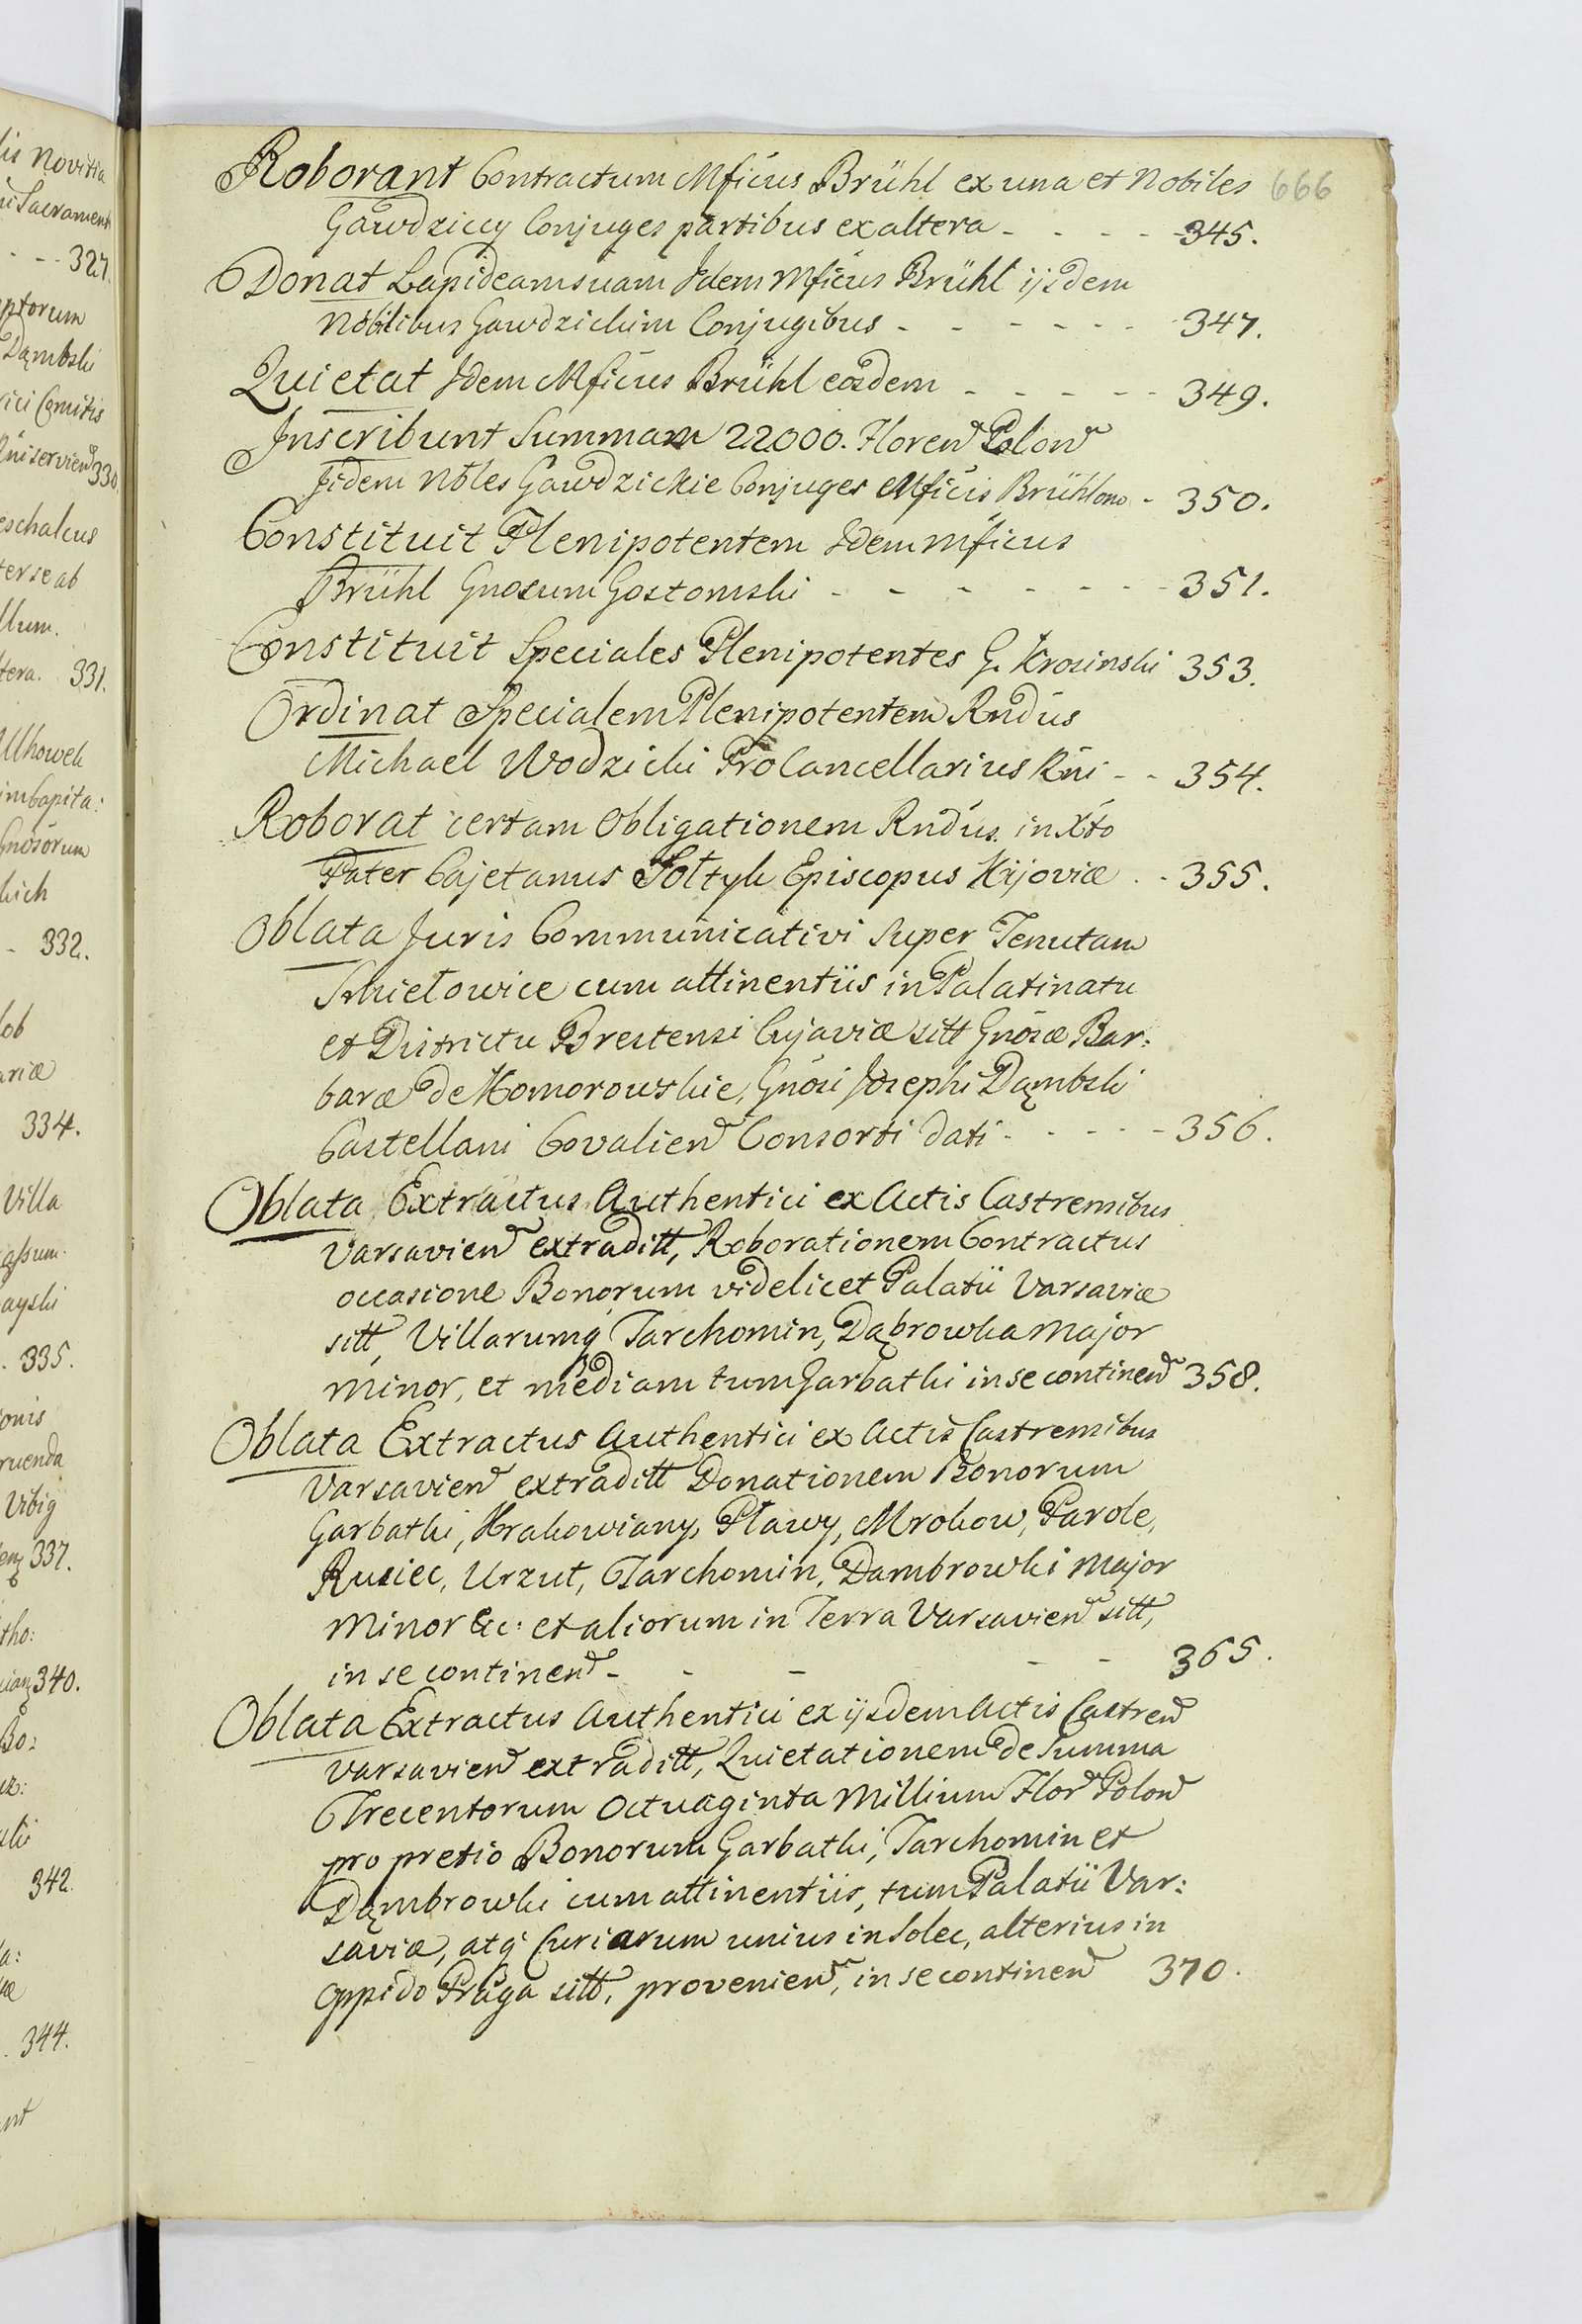 Roborant Contractum Mficus Brühl ex una et Nobiles 666
Gawdziccy Conjuges partibus ex altera - - - - - 345.
Donat Lapideam suam Idem Mficus Brühl ijsdem
Nobilibus Gawdzickim Conjugibus - - - - - - 347.
Quietat Idem Mficus Brühl eosdem - - - - - 349.
Inscribunt Summam 22000. Floren Polon
Iidem Nobles Gawdzickie Conjuges Mficis Brühlom - 350.
Constituit Plenipotentem Idem Mficus
Brühl Gnosum Gostomski - - - - - - 351.
Constituit Speciales Plenipotentes G. Krosinski 353.
Ordinat Specialem Plenipotentem Rndus
Michael Wodzicki ProCancellarius Rni - - 354.
Roborat certam Obligationem Rndus in Xto
Pater Cajetanus Sołtyk Episcopus Kijoviæ - - 355.
Oblata Juris Communicativi super Tenutam
Smiełowice cum attinentiis in Palatinatu
et Districtu Brestensi Cujaviæ sitt Gnosæ Bar:
baræ de Komorowskie, Gnosi Josephi Dąmbski
Castellani Covalien Consorti dati - - - - - 356.
Oblata Extractus Authentici ex Actis Castrensibus
Varsavien extraditt, Roborationem Contractus
occasione Bonorum videlicet Palatii Varsaviæ
sitt, Villarumq Tarchomin, Dąbrowka Major
Minor, et mediam tum Garbatki in se continen 358.
Oblata Extractus Authentici ex Actis Castrensibus
Varsavien extraditt Donationem Bonorum
Garbatki, Krakowiany, Pławy, Mrokow, Parole,
Rusiec, Urzut, Tarchomin, Dambrowki Major
Minor &c: et aliorum in Terra Varsavien sitt,
in se continen - - - - - 365.
Oblata Extractus Authentici ex ijsdem Actis Castren
Varsavien extraditt, Quietationem de Summa
Trecentorum Octuaginta Millium Flor Polon
pro pretio Bonorum Garbatki, Tarchomin et
Dąmbrowki cum attinentiis, tum Palatii Var:
saviæ, atq Curiarum unius in Solec, alterius in
Oppido Praga sitt, provenien, in se continen 370.